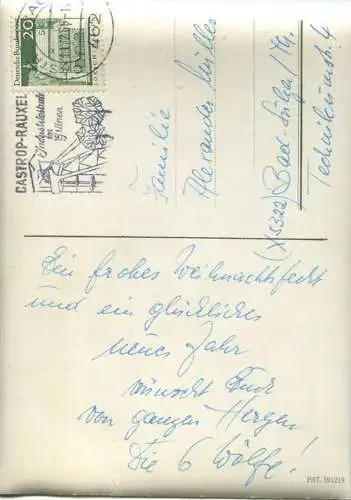 Deutsche Bundespost
20
462
CASTROP-RAUXEL
Industriestadt
im
Grünen
Familie
Alexander Müller
(X 5322) Bad-Sulza/Th.
Ein frohes Weihnachtsfest
und ein glückliches
neues Jahr
wünscht Euch
von ganzen Herzen
Die 6 Wölfe!
PAT. 101219